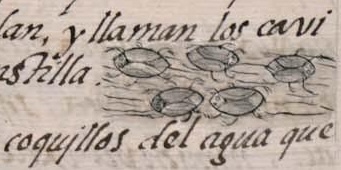 lan, y llaman los cavi
astilla.
coquillos del agua que